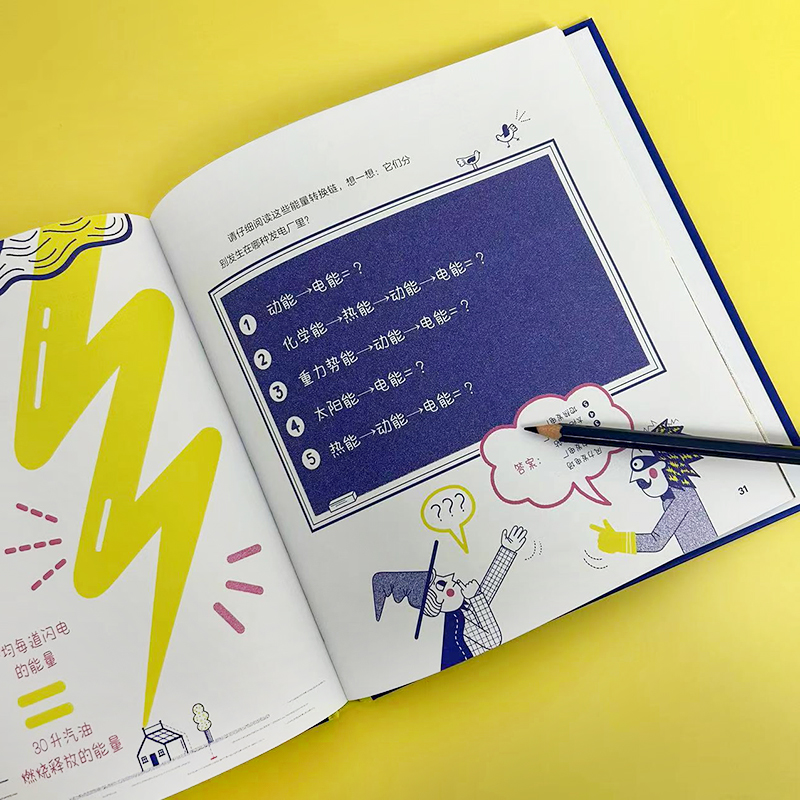 均每道闪电
的能量
30升汽油
燃烧释放的能量
请仔细阅读这些能量转换链，想一想：它们分
别发生在哪种发电厂里？
1 动能→电能=？
2 化学能→热能→动能→电能=？
3 重力势能→动能→电能=？
4 太阳能→电能=？
5 热能→动能→电能=？
答案：
风力发电场
???
31